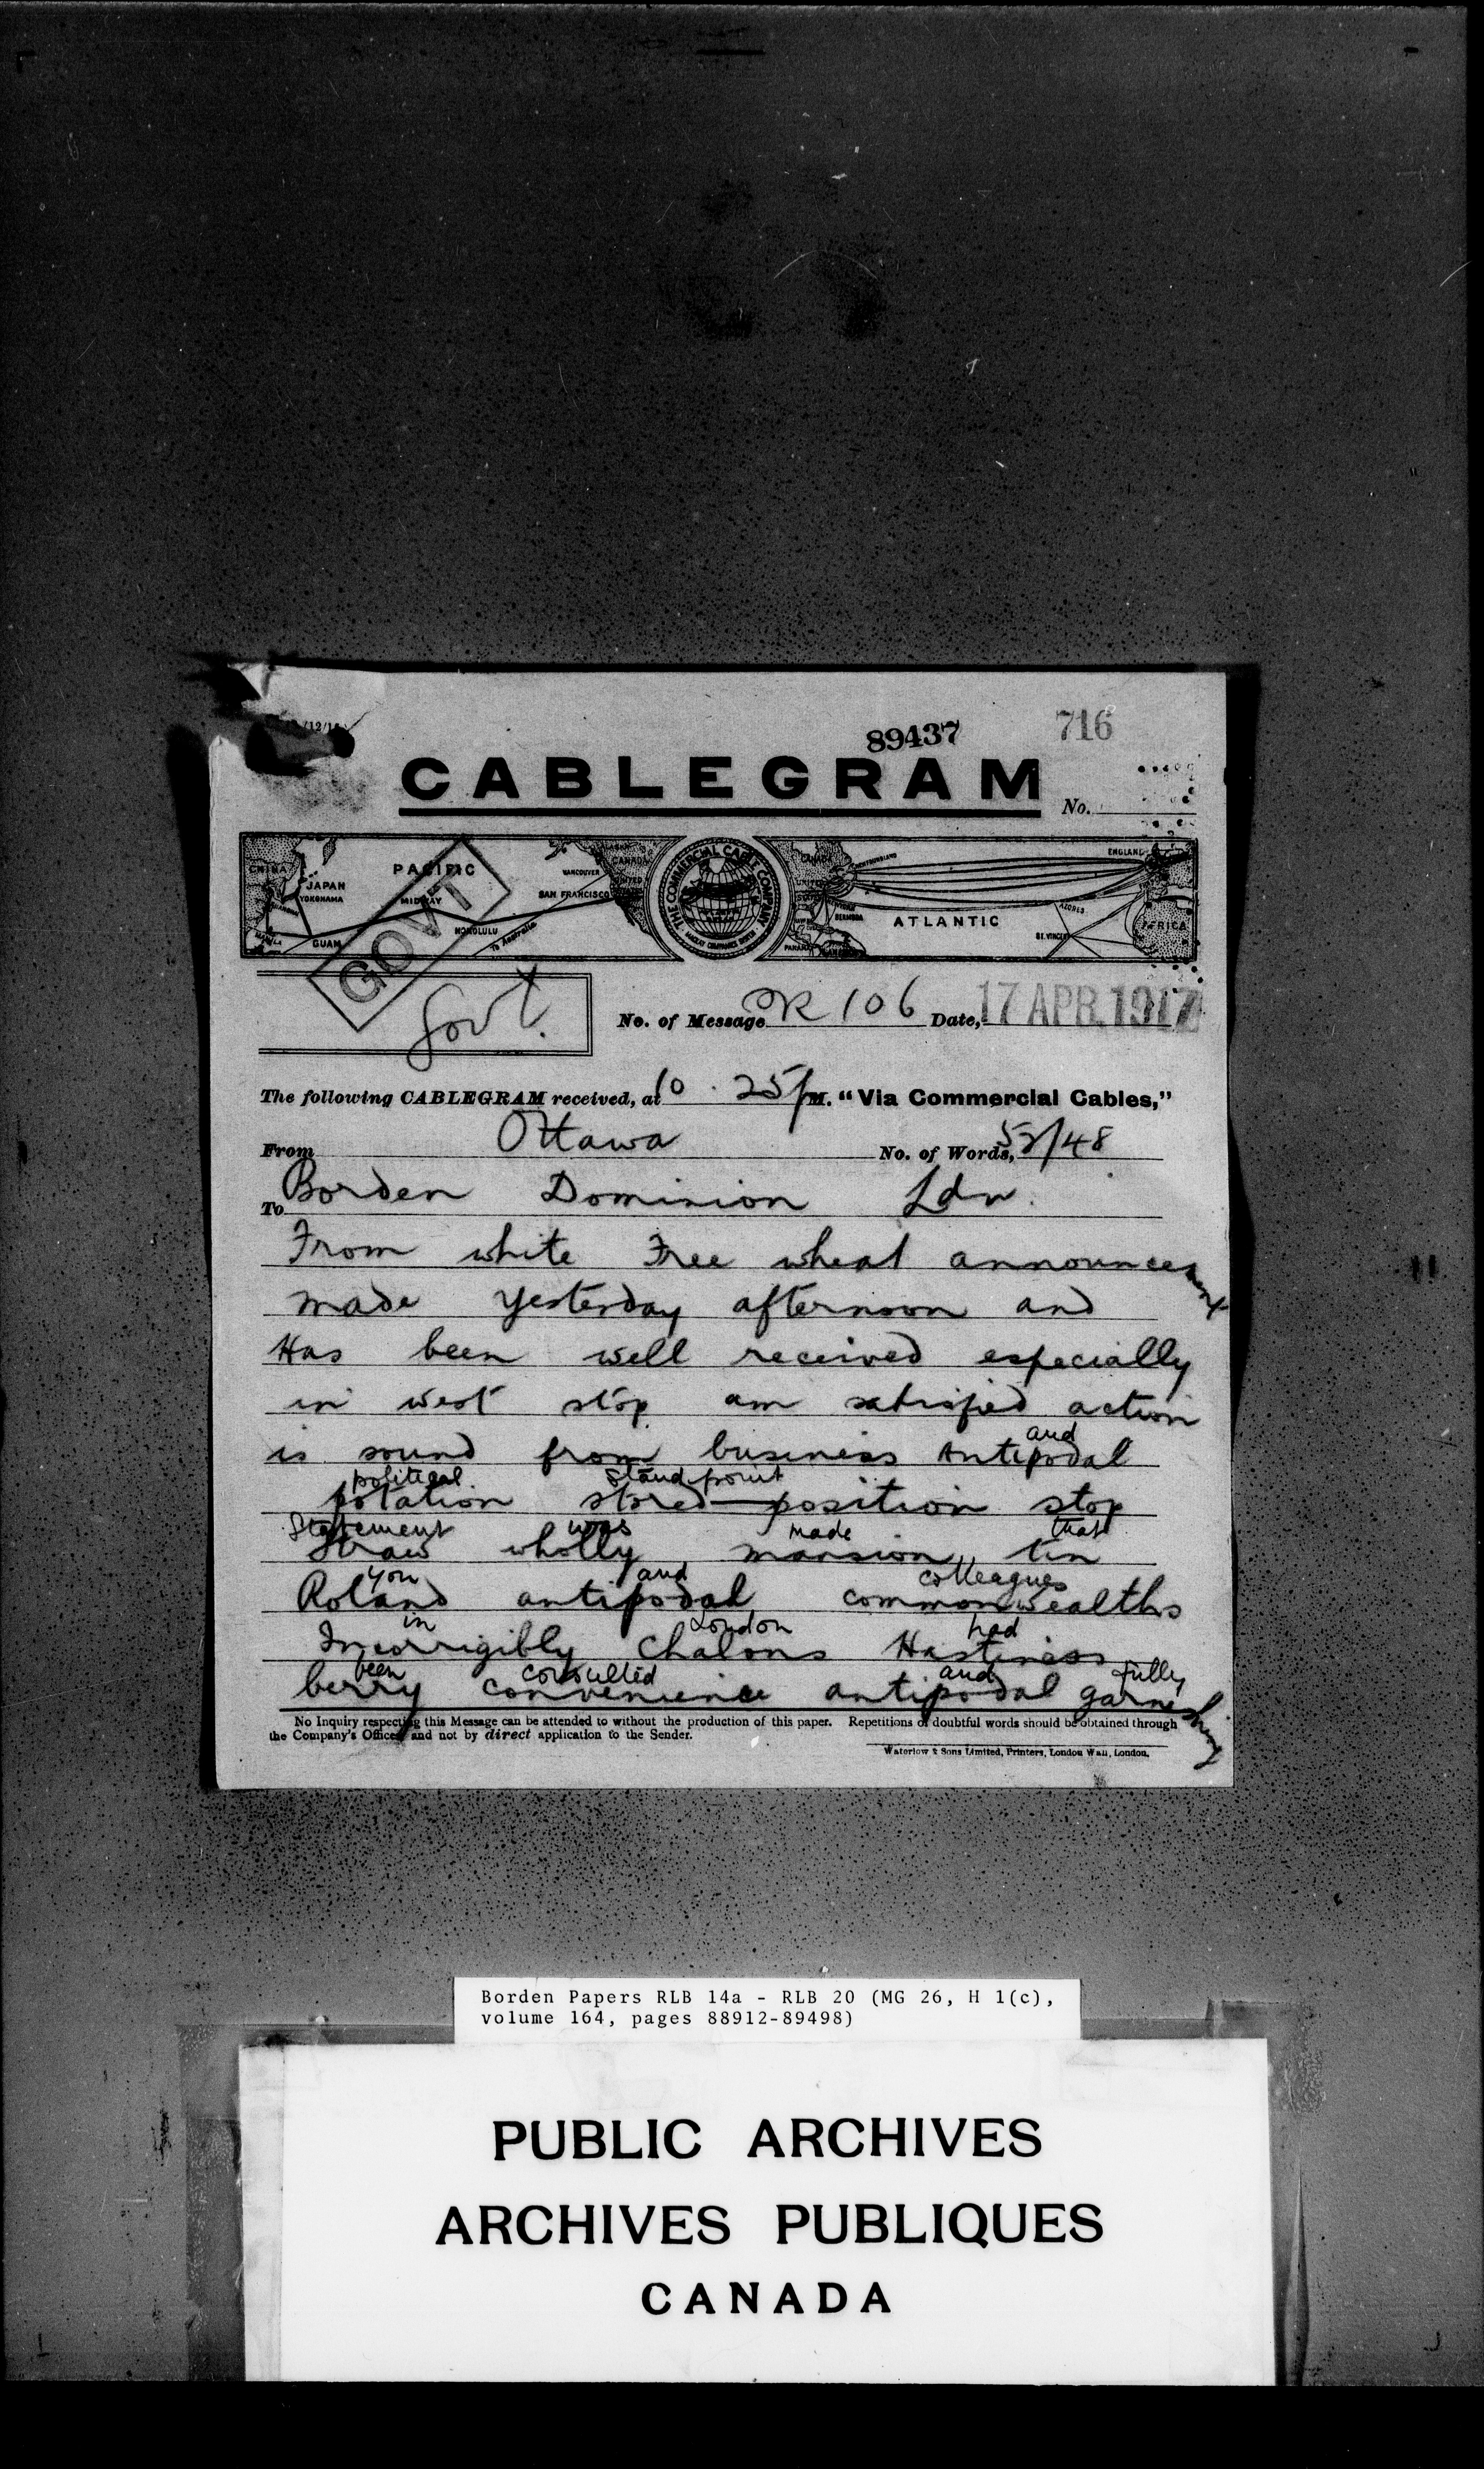 89437 716
CABLEGRAM
No.
CHINA JAPAN YOKOHAMA PACIFIC MIDWAY GUAM MANILA HONOLULU To Australia VANCOUVER SAN FRANCISCO CANADA UNITED
THE COMMERCIAL CABLE COMPANY
CANADA NEWFOUNDLAND UNITED STATES BERMUDA PANAMA ATLANTIC AZORES ST. VINCENT ENGLAND AFRICA
GOVT
Govt.
No. of Message OR 106 Date, 17 APR. 1917
The following CABLEGRAM received, at 10.25 PM. "Via Commercial Cables,"
From Ottawa No. of Words, 52/48
To Borden Dominion Ldn.
From white Free wheat announcement
made yesterday afternoon and
Has been well received especially
in west stop am satisfied action
and
is sound from business antipodal
political standpoint
potation stored position stop
Statement was made that
straw wholly mansion tin
you and colleagues
Roland antipodal commonwealths
in London had
Incorrigibly Chalons Hastiness
been consulted and fully
berry convenience antipodal garnishing
No Inquiry respecting this Message can be attended to without the production of this paper. Repetitions of doubtful words should be obtained through
the Company's Offices and not by direct application to the Sender.
Waterlow & Sons Limited, Printers, London Wall, London.
Borden Papers RLB 14a - RLB 20 (MG 26, H 1(c),
volume 164, pages 88912-89498)
PUBLIC ARCHIVES
ARCHIVES PUBLIQUES
CANADA